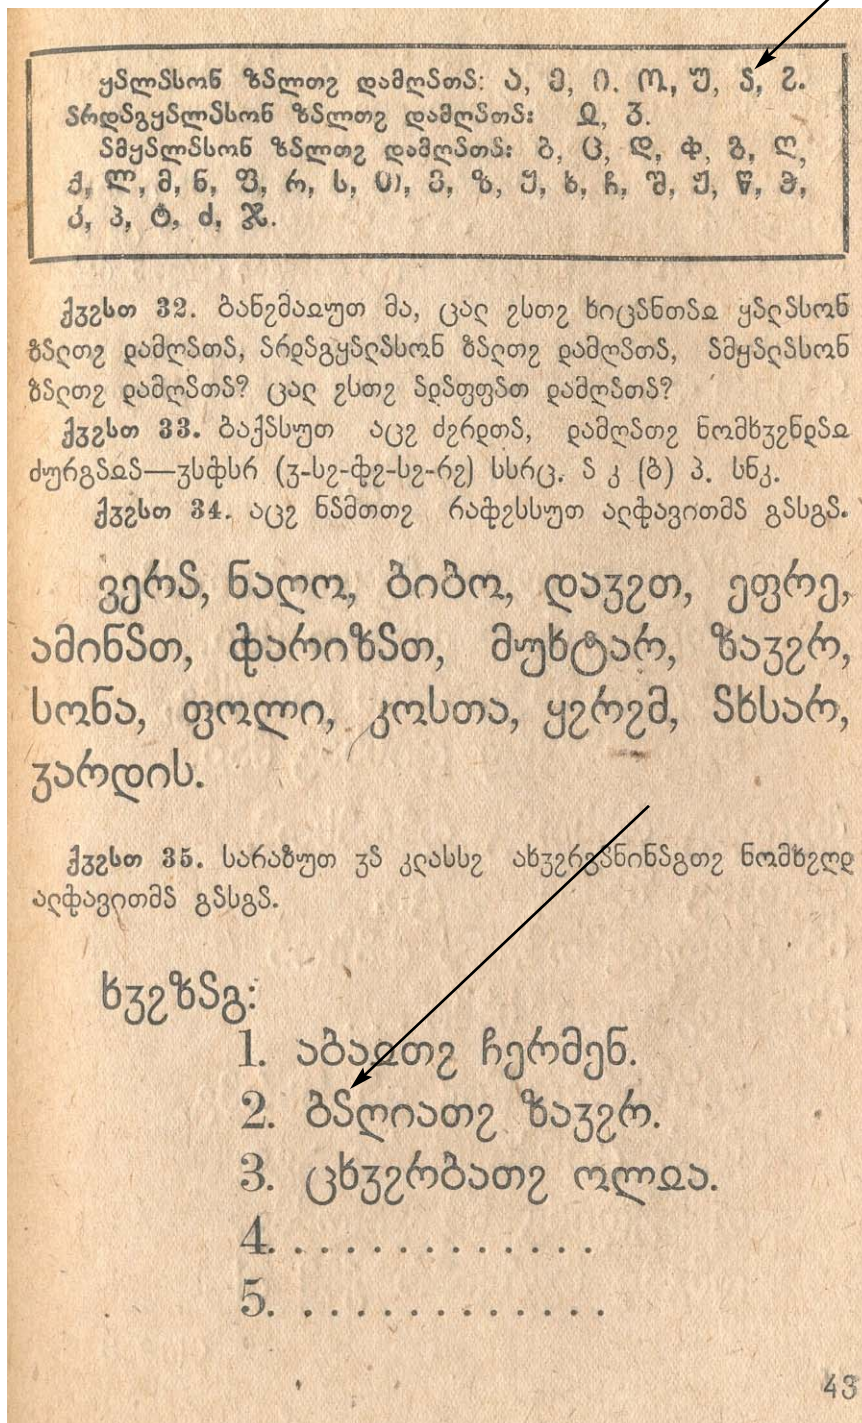 ყჽლჽსონ ზჽლთჷ დამღჽთჽ: ა, ე, ი. ო, უ, ჽ, ჷ.
ჽრდჽგყჽლჽსონ ზჽლთჷ დამღჽთჽ: ჲ, ჳ.
ჽმყჽლჽსონ ზჽლთჷ დამღჽთჽ: ბ, ც, დ, ჶ, გ, ღ,
ქ, ლ, მ, ნ, ფ, რ, ს, თ, ვ, ზ, ყ, ხ, ჩ, შ, ჟ, წ, ჭ,
კ, პ, ტ, ძ, ჯ.
ქჳჷსთ 32. ბანჷმაჲუთ მა, ცალ ჷსთჷ ხიცჽნთჽჲ ყჽლჽსონ
ზჽლთჷ დამღჽთჽ, ჽრდჽგყჽლჽსონ ზჽლთჷ დამღჽთჽ, ჽმყჽლჽსონ
ზჽლთჷ დამღჽთჽ? ცალ ჷსთჷ ჽდჽფფჽთ დამღჽთჽ?
ქჳჷსთ 33. ბაქჽსუთ აცჷ ძჷრდთჽ, დამღჽთჷ ნომხჳჷნდჽჲ
ძურგჽჲჽ—ჳსჶსრ (ჳ-სჷ-ჶჷ-სჷ-რჷ) სსრც. ჽ კ (ბ) პ. სნკ.
ქჳჷსთ 34. აცჷ ნჽმთთჷ რაჶჷსსუთ ალჶავითმჽ გჽსგჽ.
ვერჽ, ნალო, ბიბო, დაჳჷთ, ეფრე,
ამინჽთ, ჶარიზჽთ, მუხტარ, ზაჳჷრ,
სონა, ფოლი, კოსთა, ყჷრჷმ, ჽხსარ,
ჳარდის.
ქჳჷსთ 35. სარაზუთ ჳჽ კლასსჷ ახჳჷრგჽნინჽგთჷ ნომხჷღდ
ალჶავითმჽ გჽსგჽ.
ხჳჷზჽგ:
1. აბაჲთჷ ჩერმენ.
2. ბჽღიათჷ ზაჳჷრ.
3. ცხჳჷრბათჷ ოლჲა.
4. . . . . . . . . . . . . .
5. . . . . . . . . . . . . .
43